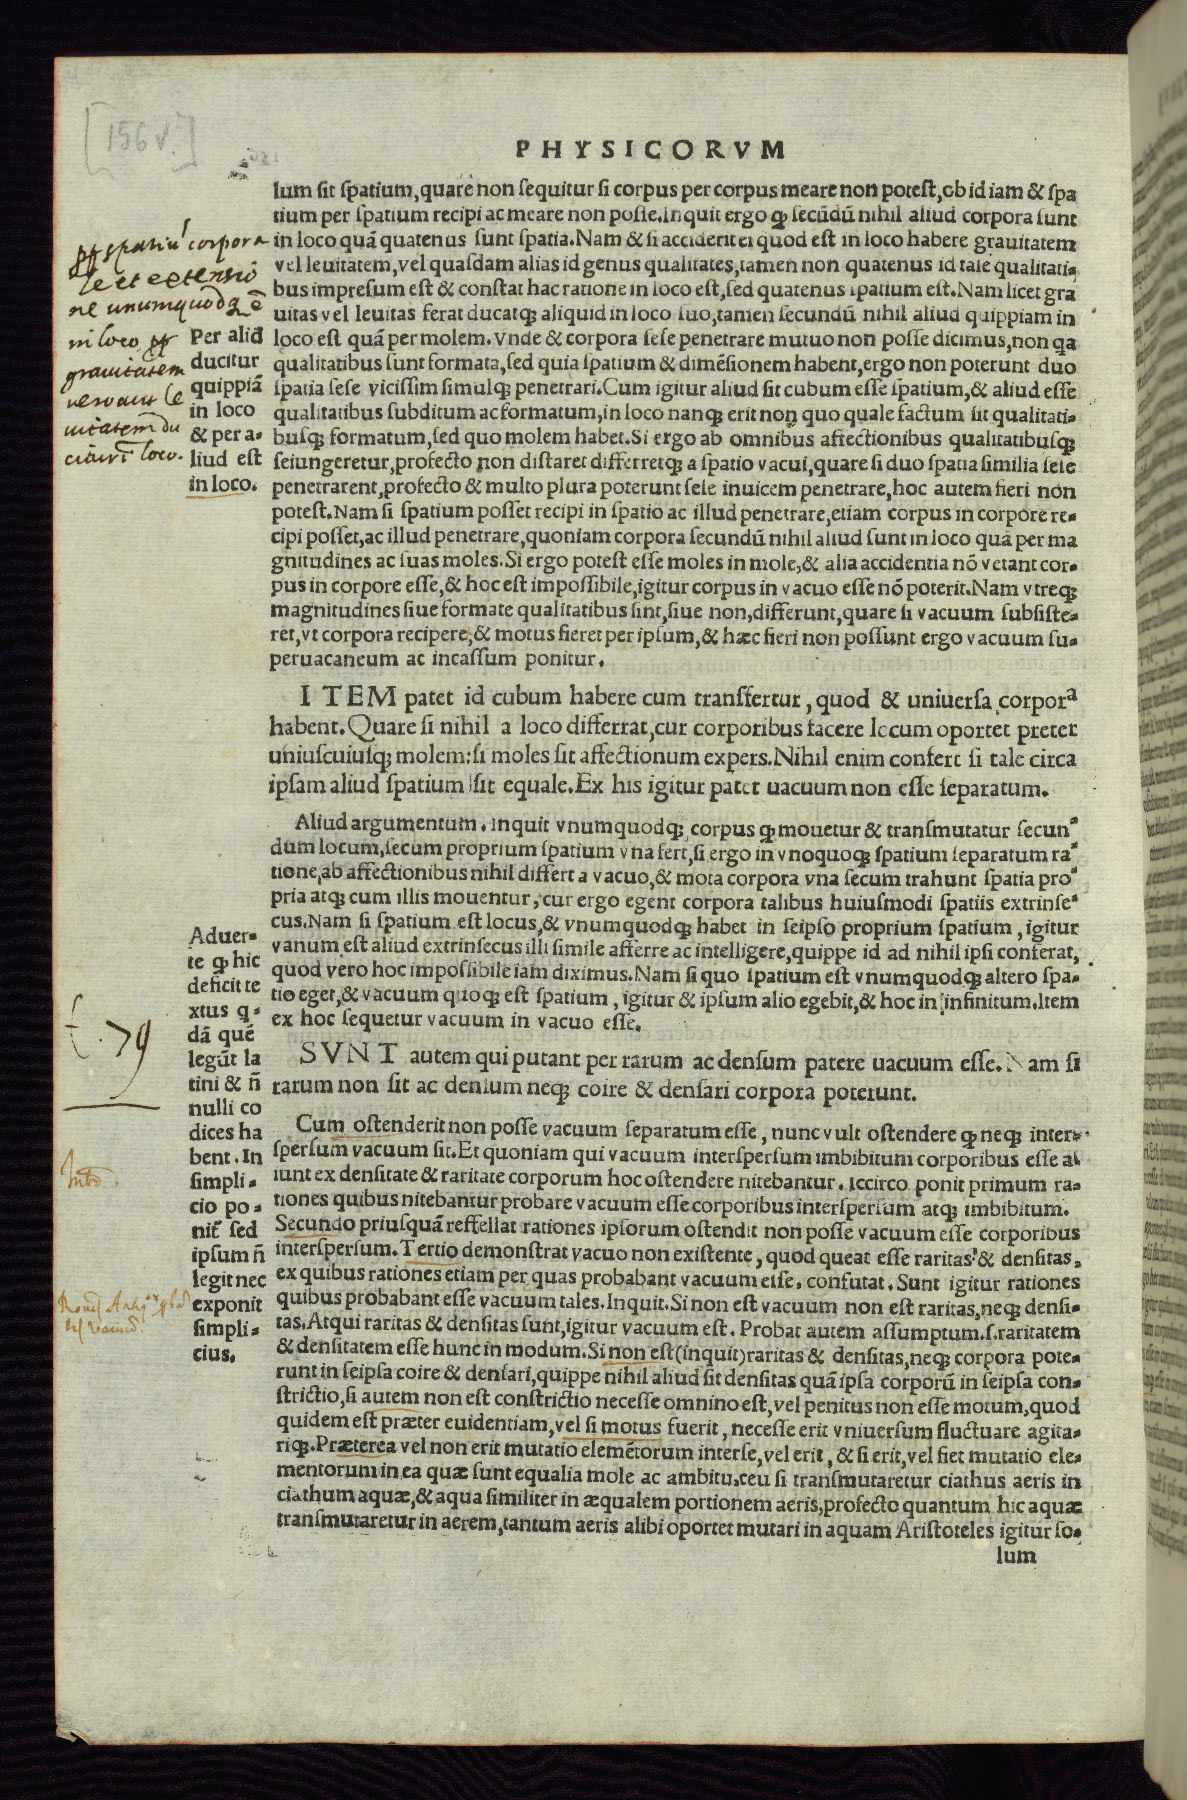 [156 v.]
PHYSICORVM
lum sit spatium, quare non sequitur si corpus per corpus meare non potest, ob id iam & spa
tium per spatium recipi ac meare non posse. Inquit ergo ꝙ secũdũ nihil aliud corpora sunt
in loco quã quatenus sunt spatia. Nam & si acciderit ei quod est in loco habere grauitatem
vel leuitatem, vel quasdam alias id genus qualitates, tamen non quatenus id tale qualitati-
bus impresum est & constat hac ratione in loco est, sed quatenus spatium est. Nam licet gra
uitas vel leuitas ferat ducatqꝫ aliquid in loco suo, tamen secundũ nihil aliud quippiam in
loco est quã per molem. Vnde & corpora sese penetrare mutuo non posse dicimus, non qa
qualitatibus sunt formata, sed quia spatium & dimẽsionem habent, ergo non poterunt duo
spatia sese vicissim simulqꝫ penetrari. Cum igitur aliud sit cubum esse spatium, & aliud esse
qualitatibus subditum ac formatum, in loco nanqꝫ erit non quo quale factum sit qualitati-
busqꝫ formatum, sed quo molem habet. Si ergo ab omnibus affectionibus qualitatibusqꝫ
seiungeretur, profecto non distaret differretqꝫ a spatio vacui, quare si duo spatia similia sese
penetrarent, profecto & multo plura poterunt sese inuicem penetrare, hoc autem fieri non
potest. Nam si spatium posset recipi in spatio ac illud penetrare, etiam corpus in corpore re-
cipi posset, ac illud penetrare, quoniam corpora secundũ nihil aliud sunt in loco quã per ma
gnitudines ac suas moles. Si ergo potest esse moles in mole, & alia accidentia nõ vetant cor-
pus in corpore esse, & hoc est impossibile, igitur corpus in vacuo esse nõ poterit. Nam vtreqꝫ
magnitudines siue formate qualitatibus sint, siue non, differunt, quare si vacuum subsiste-
ret, vt corpora recipere, & motus fieret per ipsum, & hæc fieri non possunt ergo vacuum su-
peruacaneum ac incassum ponitur.
spatiũ corpora
le et extensio
ne unumquodq ẽ
in loco
grauitatem
vero aut le
uitatem du
citur loco.
Per aliđ
ducitur
quippiã
in loco
& per a-
liud est
in loco.
ITEM patet id cubum habere cum transfertur, quod & uniuersa corpora
habent. Quare si nihil a loco differrat, cur corporibus facere locum oportet preter
uniuscuiusqꝫ molem: si moles sit affectionum expers. Nihil enim confert si tale circa
ipsam aliud spatium sit equale. Ex his igitur patet uacuum non esse separatum.
Aliud argumentum. Inquit vnumquodqꝫ corpus ꝙ mouetur & transmutatur secun-
dum locum, secum proprium spatium vna fert, si ergo in vnoquoqꝫ spatium separatum ra-
tione, ab affectionibus nihil differt a vacuo, & mota corpora vna secum trahunt spatia pro-
pria atqꝫ cum illis mouentur, cur ergo egent corpora talibus huiusmodi spatiis extrinse-
cus. Nam si spatium est locus, & vnumquodqꝫ habet in seipso proprium spatium, igitur
vanum est aliud extrinsecus illi simile afferre ac intelligere, quippe id ad nihil ipsi conferat,
quod vero hoc impossibile iam diximus. Nam si quo spatium est vnumquodqꝫ altero spa-
tio eget, & vacuum quoqꝫ est spatium, igitur & ipsum alio egebit, & hoc in infinitum. Item
ex hoc sequetur vacuum in vacuo esse.
Aduer-
te ꝙ hic
deficit te
xtus q-
dã quẽ
legũt la
tini & ñ
nulli co
dices ha
bent. In
simpli-
cio po-
nit̃ sed
ipsum ñ
legit nec
exponit
simpli-
cius.
t. 79
SVNT autem qui putant per rarum ac densum patere uacuum esse. Nam si
rarum non sit ac densum neqꝫ coire & densari corpora poterunt.
Cum ostenderit non posse vacuum separatum esse, nunc vult ostendere ꝙ neqꝫ inter-
spersum vacuum sit. Et quoniam qui vacuum interspersum imbibitum corporibus esse a-
iunt ex densitate & raritate corporum hoc ostendere nitebantur. Iccirco ponit primum ra-
tiones quibus nitebantur probare vacuum esse corporibus interspersum atqꝫ imbibitum.
Secundo priusquã reffellat rationes ipsorum ostendit non posse vacuum esse corporibus
interspersum. Tertio demonstrat vacuo non existente, quod queat esse raritas & densitas,
ex quibus rationes etiam per quas probabant vacuum esse, confutat. Sunt igitur rationes
quibus probabant esse vacuum tales. Inquit. Si non est vacuum non est raritas, neqꝫ densi-
tas. Atqui raritas & densitas sunt, igitur vacuum est. Probat autem assumptum. s. raritatem
& densitatem esse hunc in modum. Si non est (inquit) raritas & densitas, neqꝫ corpora pote-
runt in seipsa coire & densari, quippe nihil aliud sit densitas quã ipsa corporũ in seipsa con-
strictio, si autem non est constrictio necesse omnino est, vel penitus non esse motum, quod
quidem est præter euidentiam, vel si motus fuerit, necesse erit vniuersum fluctuare agita-
riqꝫ. Præterea vel non erit mutatio elemẽtorum interse, vel erit, & si erit, vel fiet mutatio ele-
mentorum in ea quæ sunt equalia mole ac ambitu, ceu si transmutaretur ciathus aeris in
ciathum aquæ, & aqua similiter in æqualem portionem aeris, profecto quantum hic aquæ
transmutaretur in aerem, tantum aeris alibi oportet mutari in aquam Aristoteles igitur so-
lum